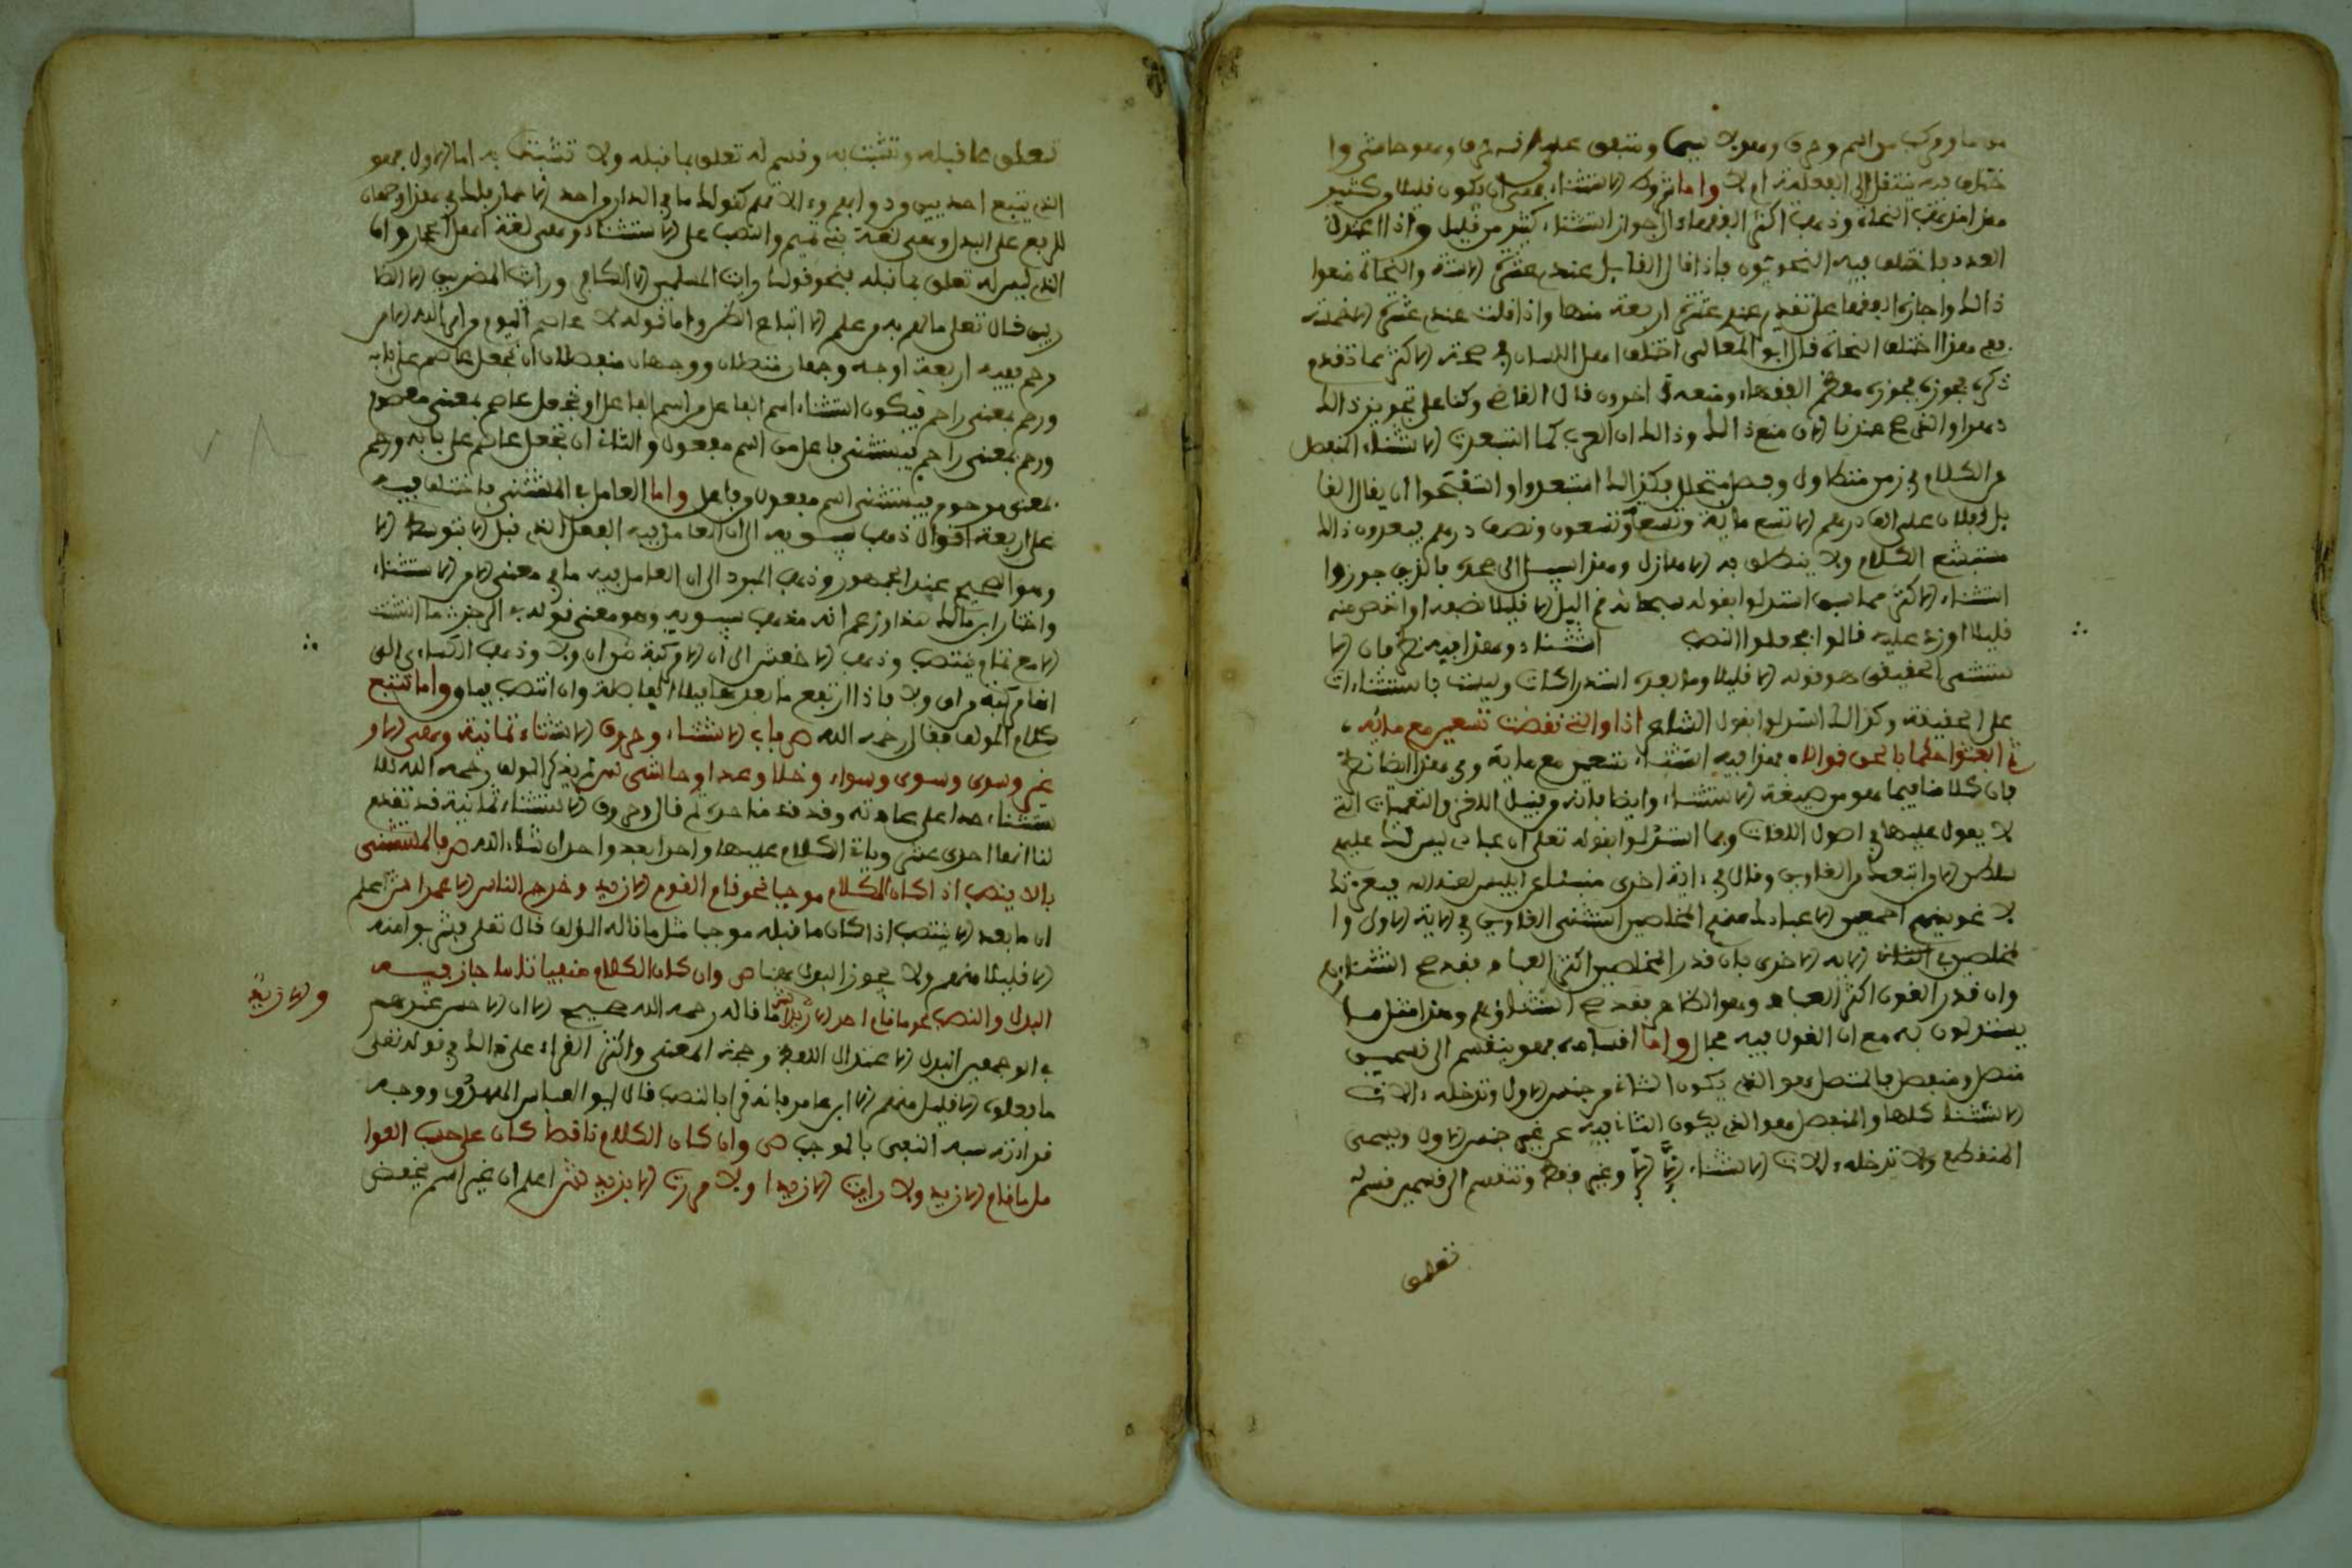 من ما ومركب من اسم وحرف وهو لا سيما ومتفق على انه حرف وهو حاشى وا
ختلف فيه ينتقل إلى الفعلية ام لا واما شروط الاستثناء فهي ان يكون قليلا وكثير
هذا مذهب النحاة وذهب اكثر الفقهاء الى جواز استثناء كثير من قليل واذا
العدد فاختلف فيه النحويون فاذا قال القايل عندي عشرة الا ستة والنحاة منعوا
ذالك واجازه الفقهاء على تقدير عندي عشرة اربعة منها واذا قلت عندي عشرة الا خمسة
ففي هذا اختلف النحاة قال ابو المعالي اختلف اهل اللسان في صحة الاكثر مما تقدم
ذكره فجوزه معظم الفقهاء ومنعه اخرون قال القاضي وكنا على تجويز ذالك
دهرا والذي صح عندنا الان منع ذالك وذالك ان العرب كما استبعدت الاستثناء المنفصل
عن الكلام في زمن متطاول وفصل متخلل فكذالك استبعدوا واستقبحوا ان يقال القا
يل لفلان علي الف درهم الا تسع ماية وتسعا وتسعون ونصف درهم فيعدون ذالك
مستبشع الكلام ولا ينطق به الا هازل وهذا سبيل الى صحة فالذين جوزوا
استثناء الاكثر مما استدلوا بقوله سبحانه قم اليل الا قليلا نصفه او انقص منه
قليلا او زد عليه قالوا فجعلوا النصف استثناء وهذا فيه نظر فان الا
ستثنى الحقيقي هو قوله الا قليلا وما بعده استدراكات وليست باستثناءات
على الحقيقة وكذالك استدلوا بقول الشاعر ادوا التي نقضت تسعين مع مائه
ثم ابعثوا حكما بالحق قوالا فهذا فيه استثناء تسعين مع ماية وفي هذا ايضا نظر
فان كلامنا فيما هو من صيغة الاستثناء وايضا فانه من قبيل
لا يعول عليها في اصول اللغات وبما استدلوا بقوله تعلى ان عبادي ليس لك عليهم
سلطن الا من اتبعك من الغاوين وقال في اية اخرى منبئا عن ابليس لعنه الله فبعزتك
لا غوينهم اجمعين الا عبادك منهم المخلصين استثنى الغاوين في الاية الاولى وا
لمخلصين في الاية الاخرى فان قدر المخلصين اكثر العباد فقد صح استثناؤهم
وان قدر الغون اكثر العباد وهو الظاهر فقد صح استثناؤهم وهذا مثل ما
يستدلون به مع ان القول فيه مجال واما اقسامه فهو ينقسم الى قسمين
متصل ومنفصل فالمتصل هو الذي يكون الثاني من جنس الاول وتدخله الات
الاستثناء كلها والمنفصل هو الذي يكون الثاني فيه من غير جنس الاول ويسمى
المنقطع ولا تدخله من الات الاستثناء الا وغير فقط وتنقسم الى قسمين قسم له
تعلق
تعلق بما قبله وتشبث به وقسم له تعلق بما قبله ولا تشبث به اما الاول فهو
الذي يتبع احد بين ودوا بهم وءالاتهم كقولك ما في الدار واحد الا حمار فلك في هذا وجهان
الرفع على البدل وهي لغة بني تميم والنصب على الاستثناء وهي لغة اهل الحجاز واما
الذي ليس له تعلق بما قبله فنحو قولك رايت المسلمين الا الكافر ورايت المضربين الا الظا
ربين قال تعلى ما لهم به من علم الا اتباع الظن واما قوله لا عاصم اليوم من امر الله الا من
رحم ففيه اربعة اوجه وجهان متصلان ووجهان منفصلان ان تجعل عاصم على بابه
ورحم بمعنى راحم فيكون استثناء اسم الفاعل من اسم الفاعل او تجعل عاصم بمعنى معصوم
ورحم بمعنى راحم فيستثنى فاعل من اسم مفعول والثاني ان تجعل عاصم على بابه ورحم
بمعنى مرحوم فيستثنى اسم مفعول من فاعل واما العامل في المستثنى فاختلف فيه
على اربعة اقوال ذهب سيبويه الى ان العامل فيه الفعل الذي قبل الا بتوسط الا
وهو الصحيح عند الجمهور وذهب المبرد الى ان العامل فيه ما في معنى الا من الاستثناء
واختار ابن مالك هذا وزعم انه مذهب سيبويه وهو معنى قوله في الرجز ما استثنت
الا مع تمام ينتصب وذهب الاخفش الى ان الا مركبة من ان ولا وذهب الكساءي الى
انها مركبة من ان ولا فاذا ارتفع ما بعدها فبلا العاطفة وان انتصب فبان واما تتبع
كلام المولف فقال رحمه الله ص باب الاستثناء وحروف الاستثناء ثمانية وهي الا و
غير وسوى وسوى وسواء وخلا وعدا وحاشى ش لم يذكر المولف رحمه الله للا
ستثناء حدا على عادته وقد قدمنا حده ثم قال وحروف الاستثناء ثمانية قد تقدم
لنا انها احدى عشر وياتي الكلام عليها واحدا بعد واحد ان شاء الله ص فالمستثنى
بالا ينصب اذا كان الكلام موجبا نحو قام القوم الا زيد وخرج الناس الا عمرا ش اعلم
ان ما بعد الا ينتصب اذا كان ما قبله موجبا مثل ما قاله المولف قال تعلى فشربوا منه
الا قليلا منهم ولا يجوز البدل هنا ص وان كان الكلام منفيا تاما جاز فيه
البدل والنصب نحو ما قام احد الا زيدا ش ما قاله رحمه الله صحيح الا ان الاحسن عندهم
والا زيد
في الوجهين البدل الا عند ال اللفظ وصحة المعنى واكثر القراء على ذالك في قوله تعلى
ما فعلوه الا قليل منهم الا ابن عامر فانه قرا بالنصب قال ابو العباس المهدوي ووجه
قراءته شبه النفي بالموجب ص وان كان الكلام ناقصا كان على حسب العوا
مل ما قام الا زيد ولا رايت الا زيدا ولا مررت الا بزيد ش اعلم ان غير اسم يخفض